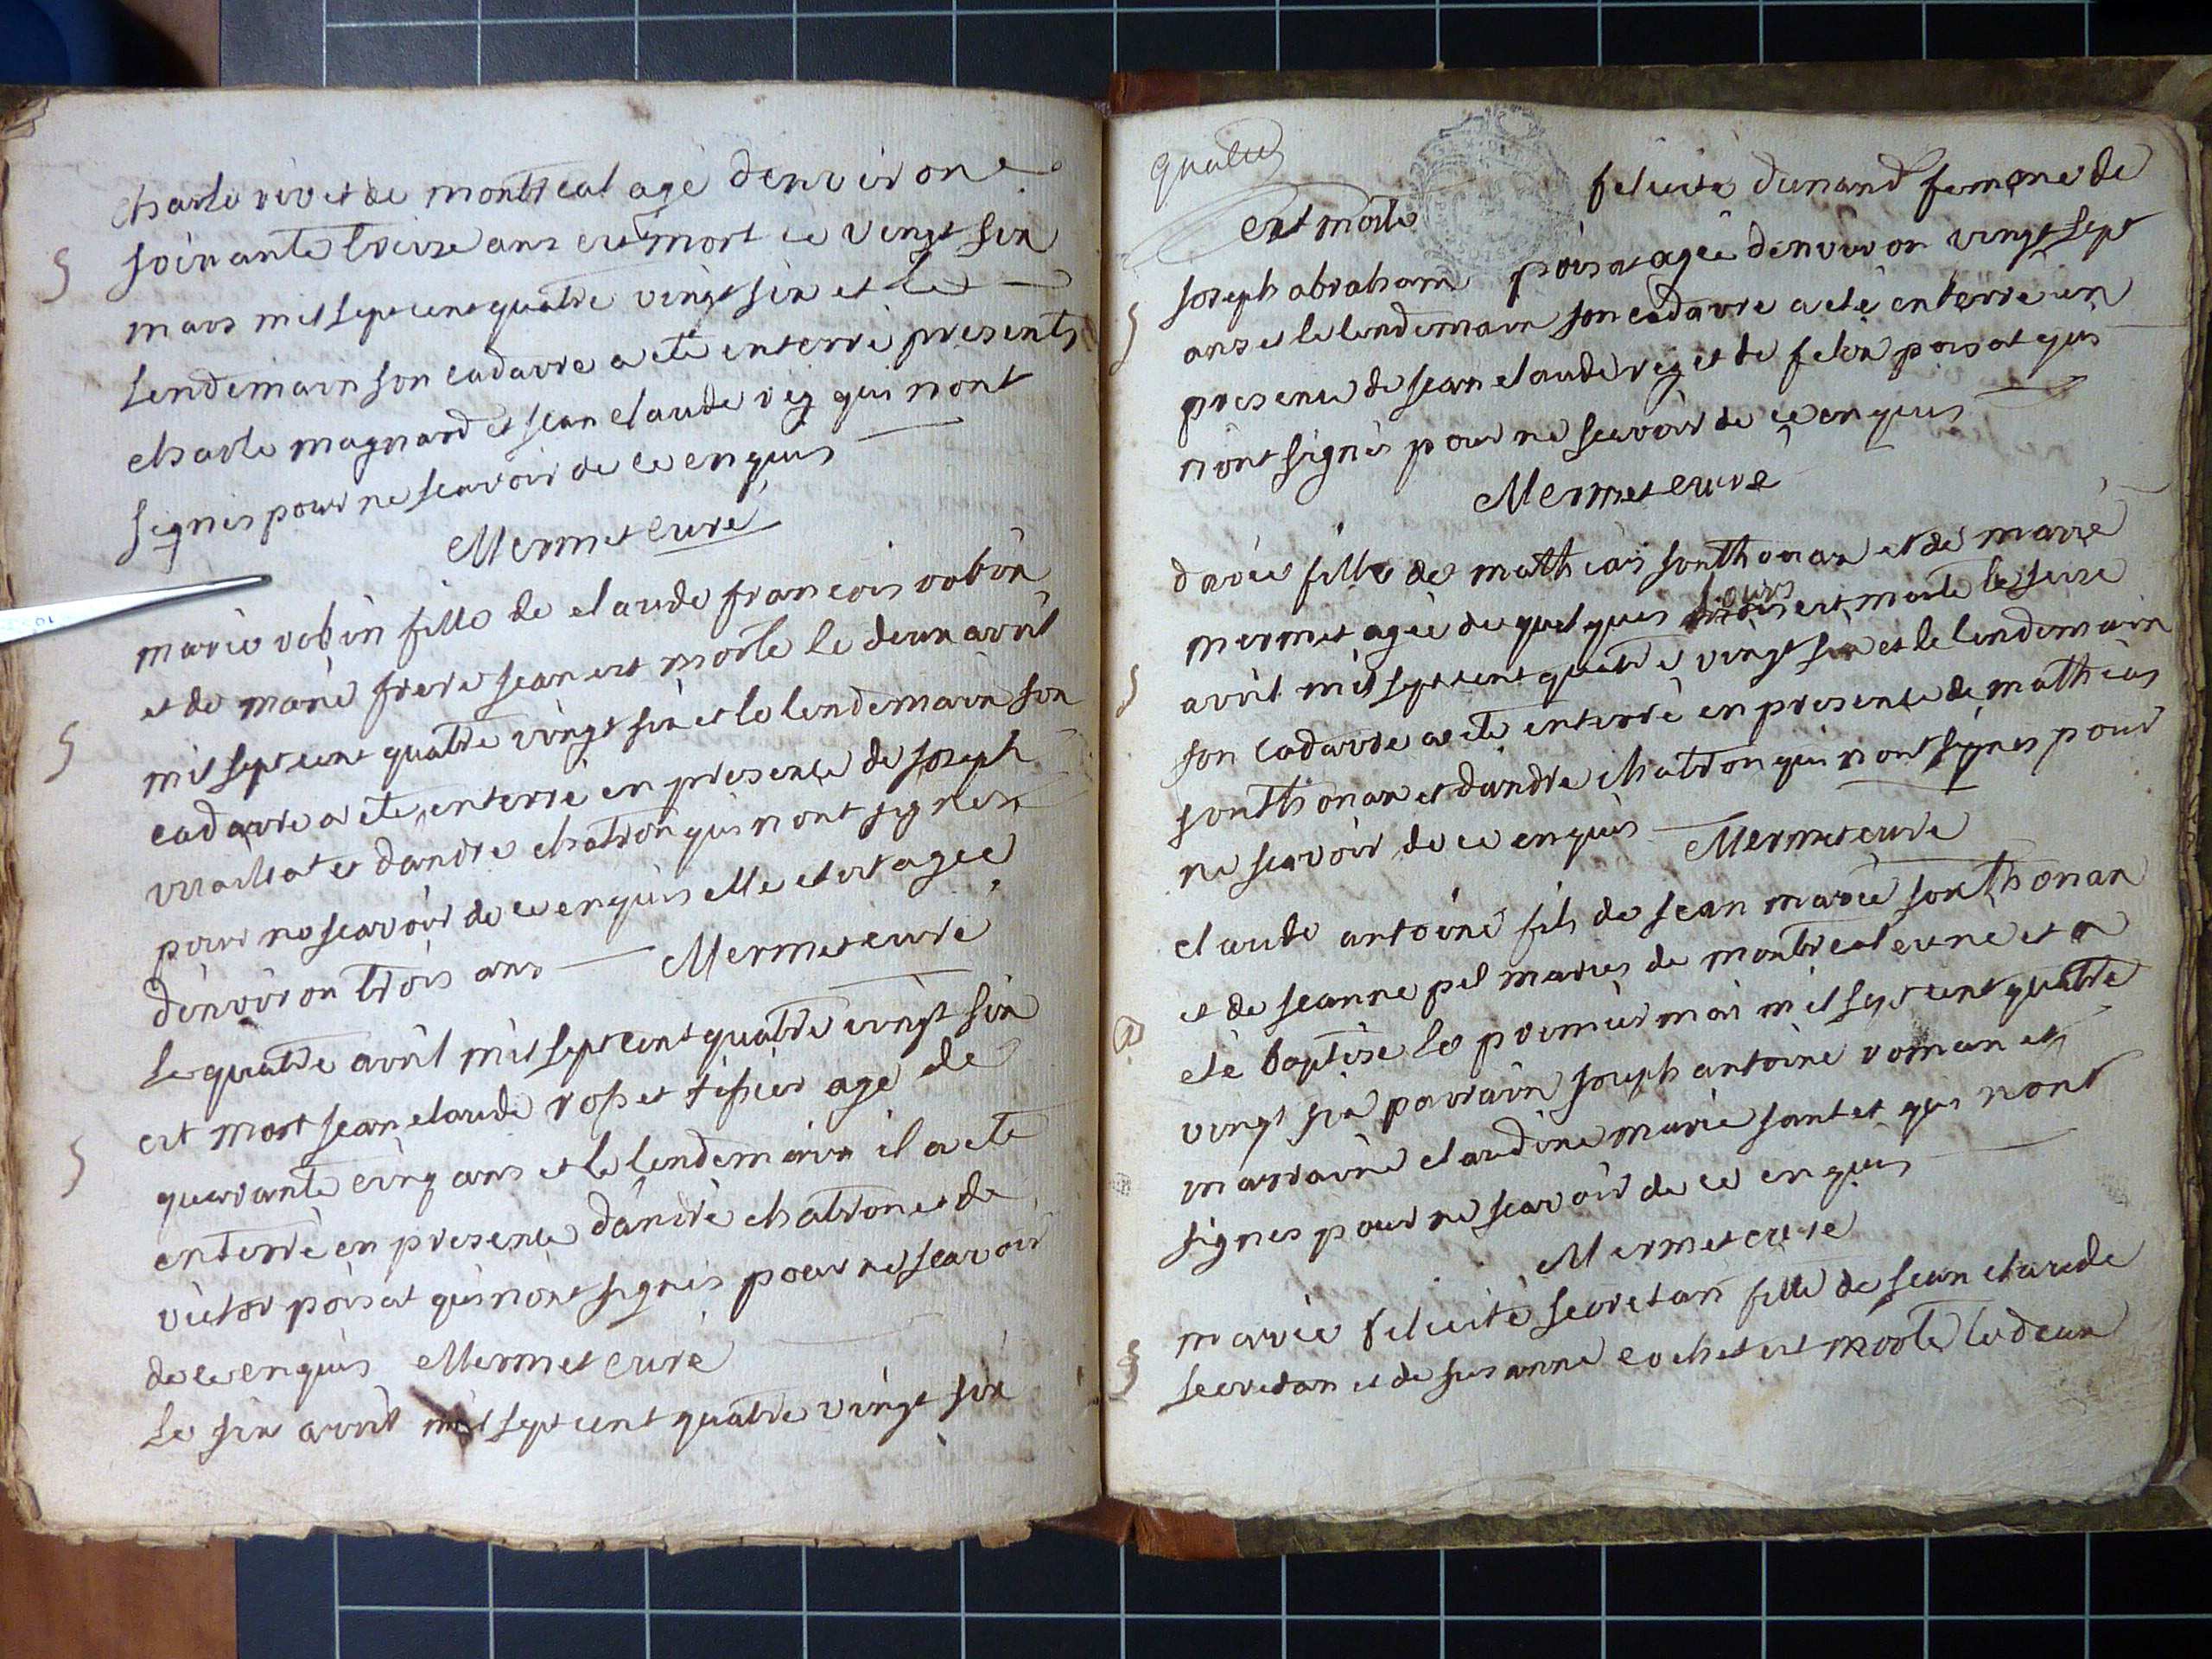 charle rivet de montreal agé denvirone
soixante treize ans est mort le vingt six
mars mil sept cent quatre vingt six et le
lendemain son cadavre a eté enterré presents
charle magnard et jean claude rey qui nont
signés pour ne scavoir de ce enquis
Mermet curé
marie robin fille de claude francois robin
et de marie frere jean est morte le deux avril
mil sept cent quatre vingt six et le lendemain son
cadavre a eté enterré en presence de joseph
et dandré chatron qui nont signés
pour ne scavoir de ce enquis elle etoit agee
denviron trois ans Mermet curé
le quatre avril mil sept cent quatre vingt six
est mort jean claude rosset tissier agé de
quarante cinq ans et le lendemain il a eté
enterré en presence dandré chatron et de
victor poisat qui nont signés pour ne scavoir
de ce enquis Mermet curé
le six avril mil sept cent quatre vingt six
est morte felicité dunand femme de
joseph abraham poisat agée denviron vingt sept
ans et le lendemain son cadavre a eté enterré en
presence de jean claude rey et de felix poisat qui
nont signés pour ne scavoir de ce enquis
Mermet curé
marie fille de mathias sonthonax et de marie
mermet agée de quelques jours est morte le seize
avril mil sept cent quatre vingt six et le lendemain
son cadavre a eté enterré en presence de mathias
sonthonax et dandré chatron qui nont signés pour
ne scavoir de ce enquis Mermet curé
claude antoine fils de jean marie sonthonax
et de jeanne pel mariés de montreal est né et a
eté baptisé le premier mai mil sept cent quatre
vingt six parrain joseph antoine roman et
marraine claudine marie jantet qui nont
signés pour ne scavoir de ce enquis
Mermet curé
marie felicité secretan fille de jean claude
secretan et de susanne cochet est morte le deux